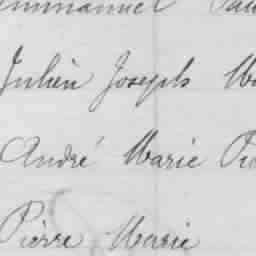 Emmanuel
Julien Joseph
André Marie
Pierre Marie